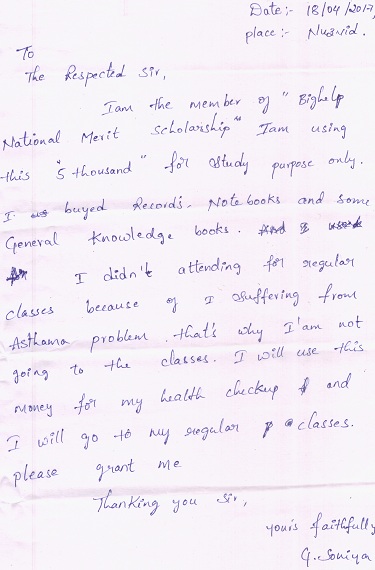 Date:- 18/04/2017,
place:- Nuzvid.
To
The Respected Sir,
I am the member of "Bighelp
National Merit Scholarship" I am using
this "5 thousand" for study purpose only.
I buyed Records. Notebooks and some
General Knowledge books. And I used
for I didn't attending for regular
classes because of I suffering from
Asthama problem. that's why I'am not
going to the classes. I will use this
money for my health checkup and
I will go to my regular classes.
please grant me
Thanking you Sir,
your's faithfully
G. Soniya